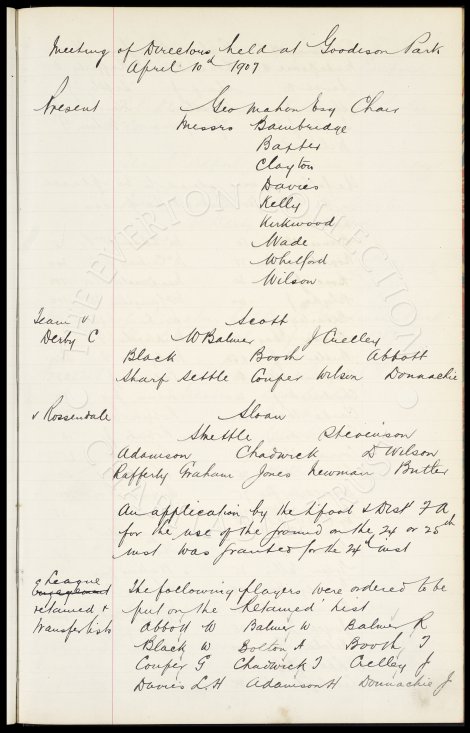 Meeting of Directors held at Goodison Park
April 10th 1907
Present Geo Mahon Esq Chair
Messrs Bainbridge
Baxter
Clayton
Davies
Kelly
Kirkwood
Wade
Whitford
Wilson
Team v Scott
Derby C W Balmer J Crelley
Black Booth Abbott
Sharp Settle Couper Wilson Donnachie
v Rossendale Sloan
Strettle Stevenson
Adamson Chadwick D Wilson
Rafferty Graham Jones Newman Butler
An application by the L'pool & Dist F A
for the use of the ground on the 24 or 25th
inst was granted for the 24th inst
League The following players were ordered to be
retained & put on the Retained List
Transfer lists Abbott W Balmer W Balmer R
Black W Bolton A Booth T
Couper G Chadwick T Crelley J
Davies L.H Adamson H Donnachie J
THE EVERTON COLLECTION